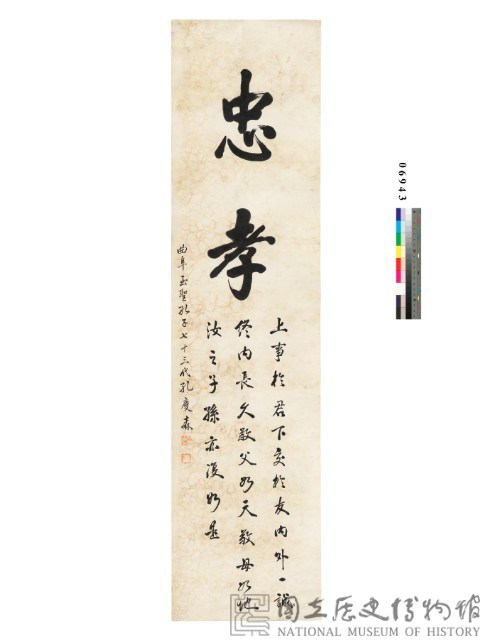 忠孝
上事於君下交於友內外一誠
終內長久敬父如天敬母如地
汝之子孫亦復如是
曲阜至聖孔子七十三代孔慶森
06943
國立歷史博物館
NATIONAL MUSEUM OF HISTORY